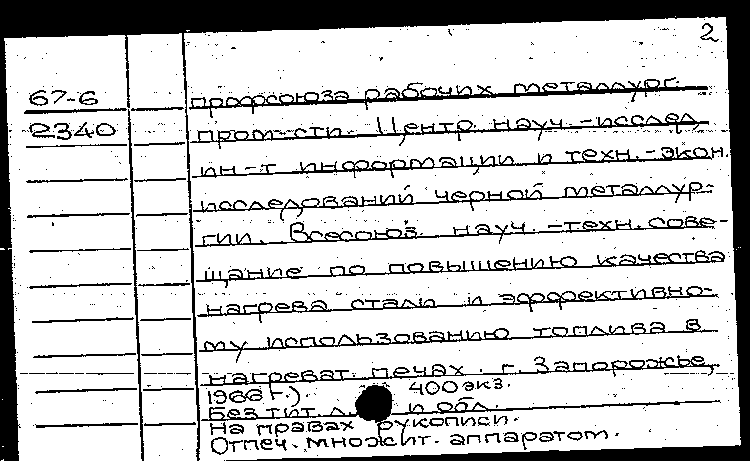 2
67-6 профсоюза рабочих металлург.
2340 пром-сти. Центр. науч.-исслед.
ин-т информации и техн.-экон.
исследований черной металлур-
гии. Всесоюз. науч.-техн. сове-
щание по повышению качества
нагрева стали и эффективно-
му использованию топлива в
нагреват. печах. г. Запорожье,
1966 г.). 400 экз.
Без тит. л. и обл.
На правах рукописи.
Отпеч. множит. аппаратом.